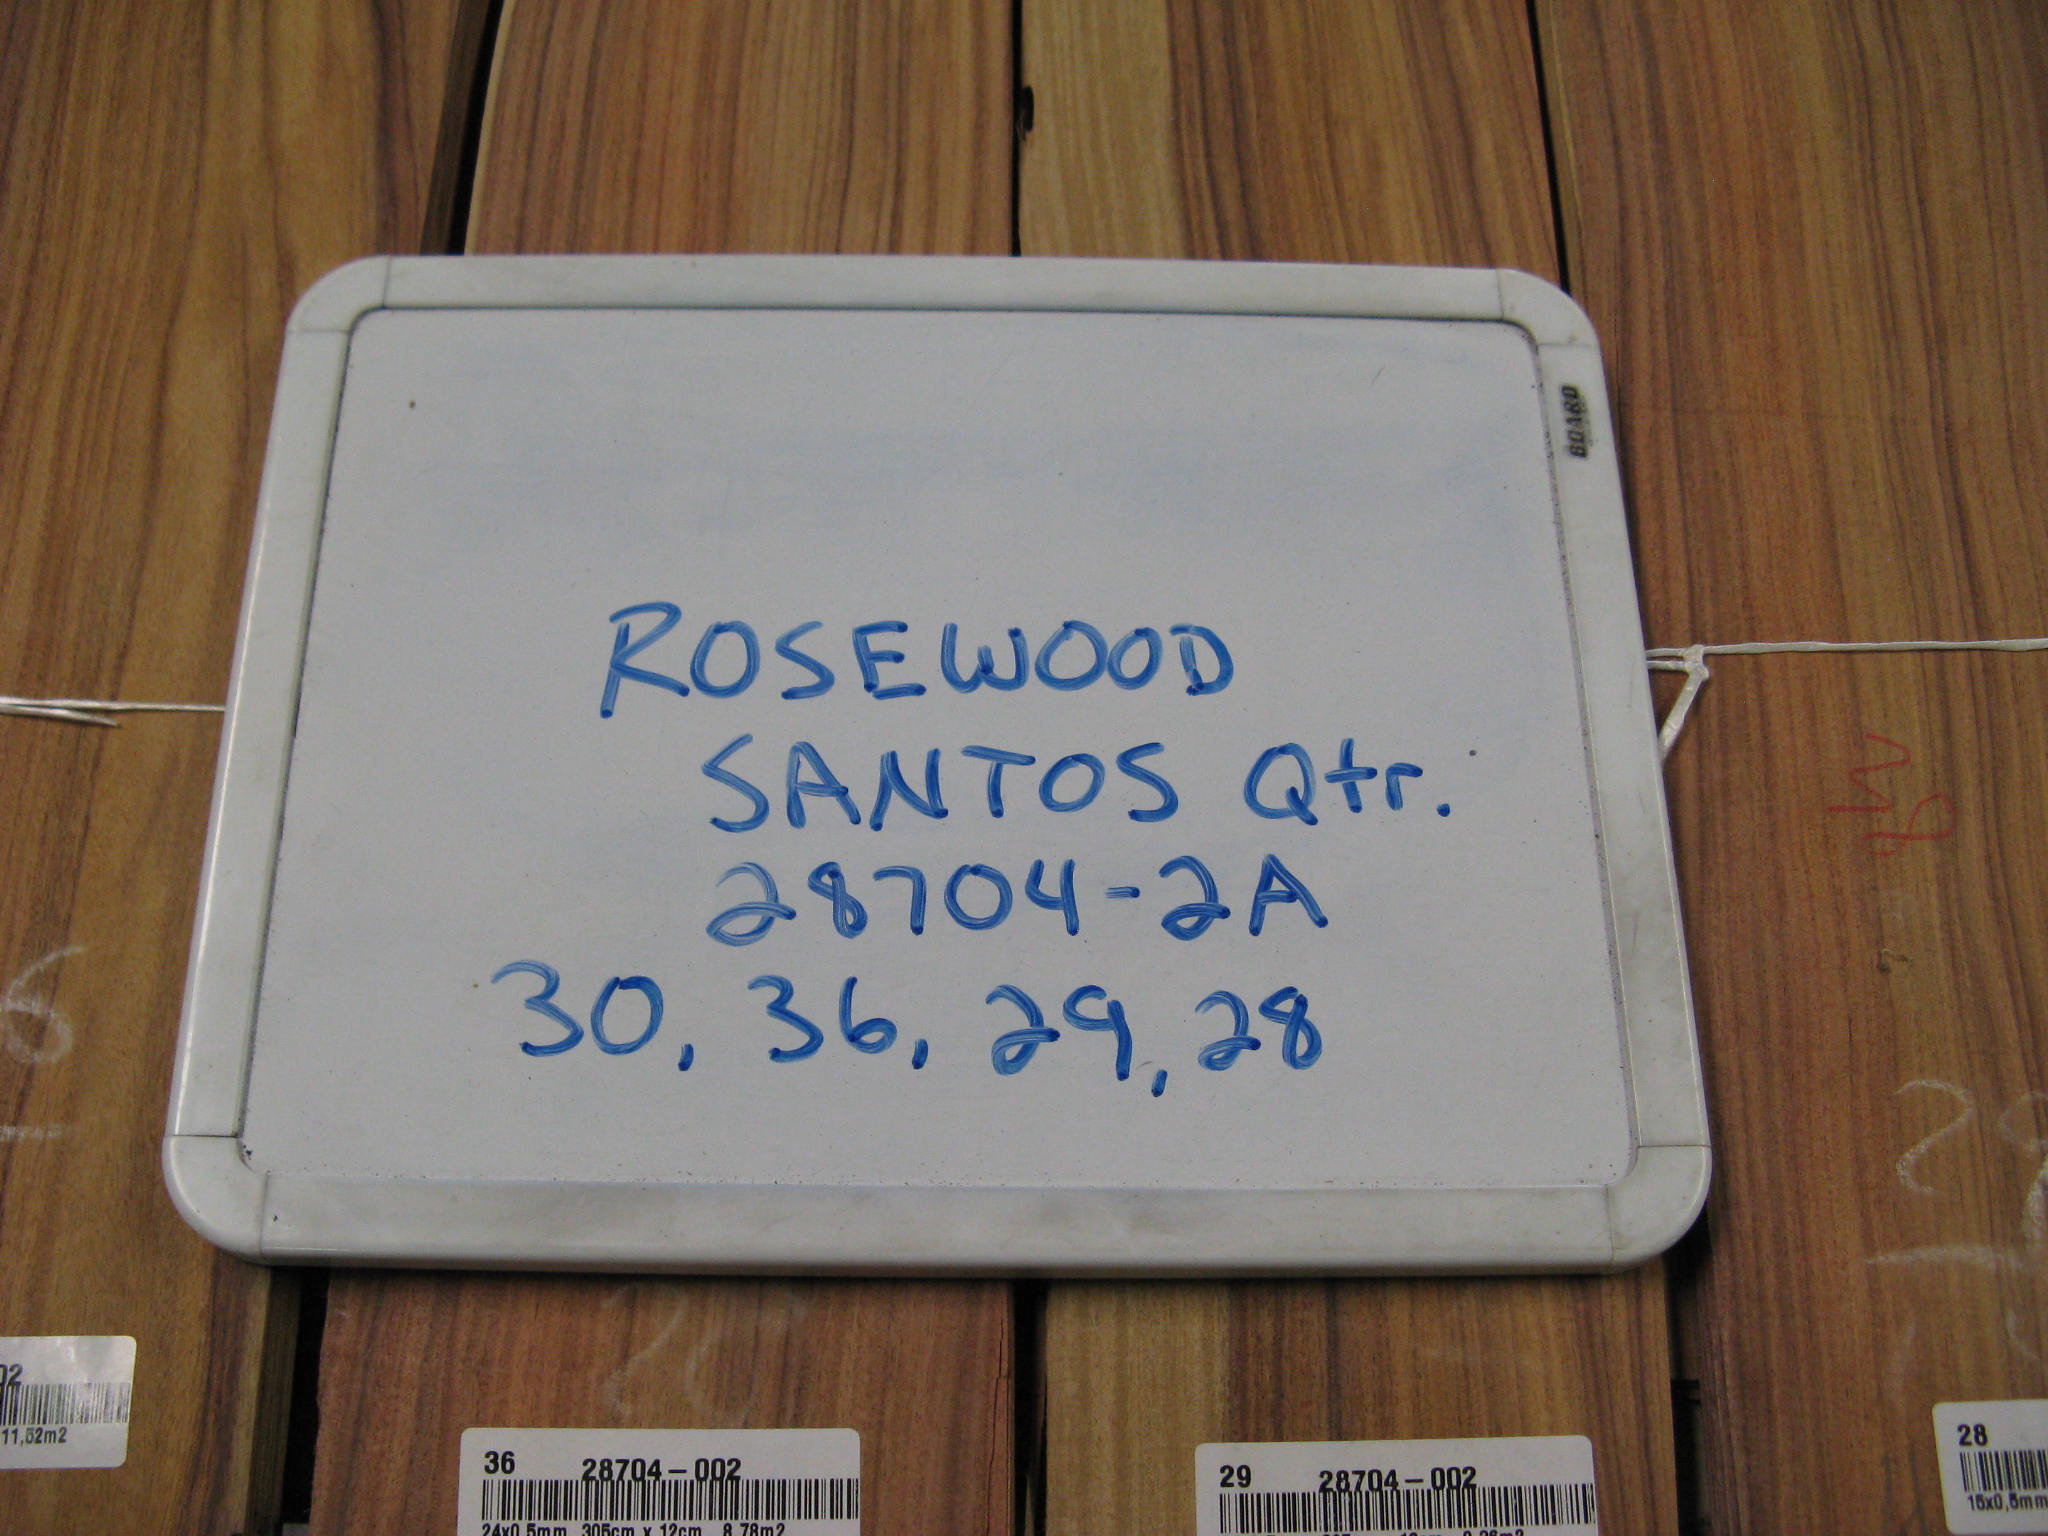 BOARD
ROSEWOOD
SANTOS Qtr.
28704-2A
30, 36, 29, 28
6
28
02
11,52m2
36 28704-002
24x0,5mm 305cm x 12cm 8,78m2
29 28704-002
28
15x0,5mm